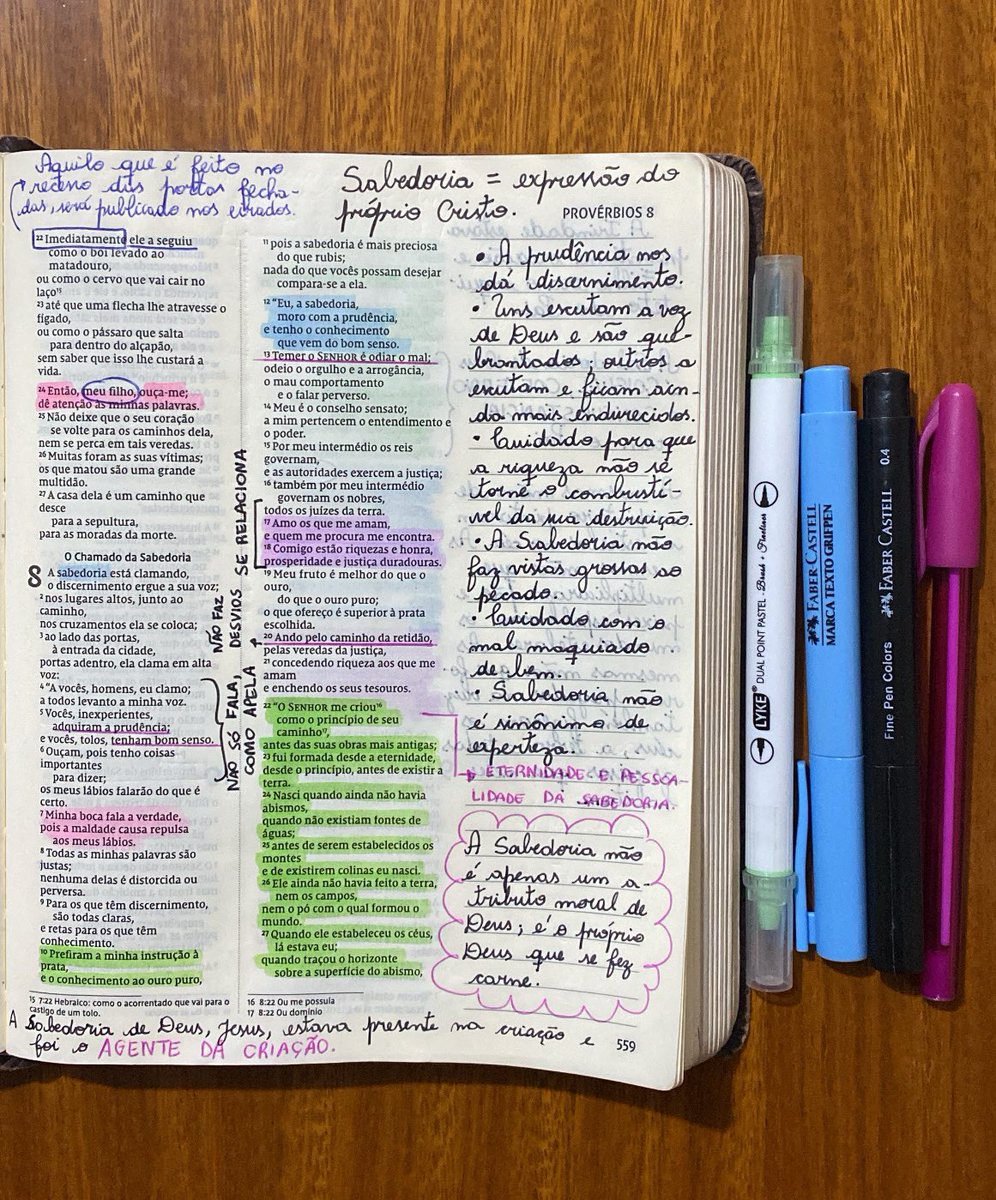 Aquilo que é feito no
receso das portas fecha-
das, será publicado nos eirados.
Sabedoria = expressão do
próprio Cristo.
PROVÉRBIOS 8
22 Imediatamente ele a seguiu
como o boi levado ao
matadouro,
ou como o cervo que vai cair no
laço15
23 até que uma flecha lhe atravesse o
fígado,
ou como o pássaro que salta
para dentro do alçapão,
sem saber que isso lhe custará a
vida.
24 Então, meu filho, ouça-me;
dê atenção às minhas palavras.
25 Não deixe que o seu coração
se volte para os caminhos dela,
nem se perca em tais veredas.
26 Muitas foram as suas vítimas;
os que matou são uma grande
multidão.
27 A casa dela é um caminho que
desce
para a sepultura,
para as moradas da morte.
O Chamado da Sabedoria
8 A sabedoria está clamando,
o discernimento ergue a sua voz;
2 nos lugares altos, junto ao
caminho,
nos cruzamentos ela se coloca;
3 ao lado das portas,
à entrada da cidade,
portas adentro, ela clama em alta
voz:
4 "A vocês, homens, eu clamo;
a todos levanto a minha voz.
5 Vocês, inexperientes,
adquiram a prudência;
e vocês, tolos, tenham bom senso.
6 Ouçam, pois tenho coisas
importantes
para dizer;
os meus lábios falarão do que é
certo.
7 Minha boca fala a verdade,
pois a maldade causa repulsa
aos meus lábios.
8 Todas as minhas palavras são
justas;
nenhuma delas é distorcida ou
perversa.
9 Para os que têm discernimento,
são todas claras,
e retas para os que têm
conhecimento.
10 Prefiram a minha instrução à
prata,
e o conhecimento ao ouro puro,
15 7:22 Hebraico: como o acorrentado que vai para o
castigo de um tolo.
NÃO SÓ FALA,
COMO APELA
NÃO FAZ
DESVIOS
SE RELACIONA
11 pois a sabedoria é mais preciosa
do que rubis;
nada do que vocês possam desejar
compara-se a ela.
12 "Eu, a sabedoria,
moro com a prudência,
e tenho o conhecimento
que vem do bom senso.
13 Temer o SENHOR é odiar o mal;
odeio o orgulho e a arrogância,
o mau comportamento
e o falar perverso.
14 Meu é o conselho sensato;
a mim pertencem o entendimento e
o poder.
15 Por meu intermédio os reis
governam,
e as autoridades exercem a justiça;
16 também por meu intermédio
governam os nobres,
todos os juízes da terra.
17 Amo os que me amam,
e quem me procura me encontra.
18 Comigo estão riquezas e honra,
prosperidade e justiça duradouras.
19 Meu fruto é melhor do que o
ouro,
do que o ouro puro;
o que ofereço é superior à prata
escolhida.
20 Ando pelo caminho da retidão,
pelas veredas da justiça,
21 concedendo riqueza aos que me
amam
e enchendo os seus tesouros.
22 "O SENHOR me criou16
como o princípio de seu
caminho17,
antes das suas obras mais antigas;
23 fui formada desde a eternidade,
desde o princípio, antes de existir a
terra.
24 Nasci quando ainda não havia
abismos,
quando não existiam fontes de
águas;
25 antes de serem estabelecidos os
montes
e de existirem colinas eu nasci.
26 Ele ainda não havia feito a terra,
nem os campos,
nem o pó com o qual formou o
mundo.
27 Quando ele estabeleceu os céus,
lá estava eu;
quando traçou o horizonte
sobre a superfície do abismo,
16 8:22 Ou me possuía
17 8:22 Ou domínio
• A prudência nos
dá discernimento.
• Uns escutam a voz
de Deus e são que-
brantados; outros a
escutam e ficam ain-
da mais endurecidos.
• Cuidado para que
a riqueza não se
torne o combustí-
vel da sua destruição.
• A Sabedoria não
faz vistas grossas ao
pecado.
• Cuidado com o
mal maquiado
de bem.
• Sabedoria não
é sinônimo de
esperteza.
ETERNIDADE E PESSOA-
LIDADE DA SABEDORIA.
A Sabedoria não
é apenas um a-
tributo moral de
Deus; é o próprio
Deus que se fez
carne.
A Sabedoria de Deus, Jesus, estava presente na criação e
foi o AGENTE DA CRIAÇÃO.
559
LYKE DUAL POINT PASTEL - Brush + Fineliner
FABER CASTELL
MARCA TEXTO GRIFPEN
Fine Pen Colors FABER CASTELL 0.4